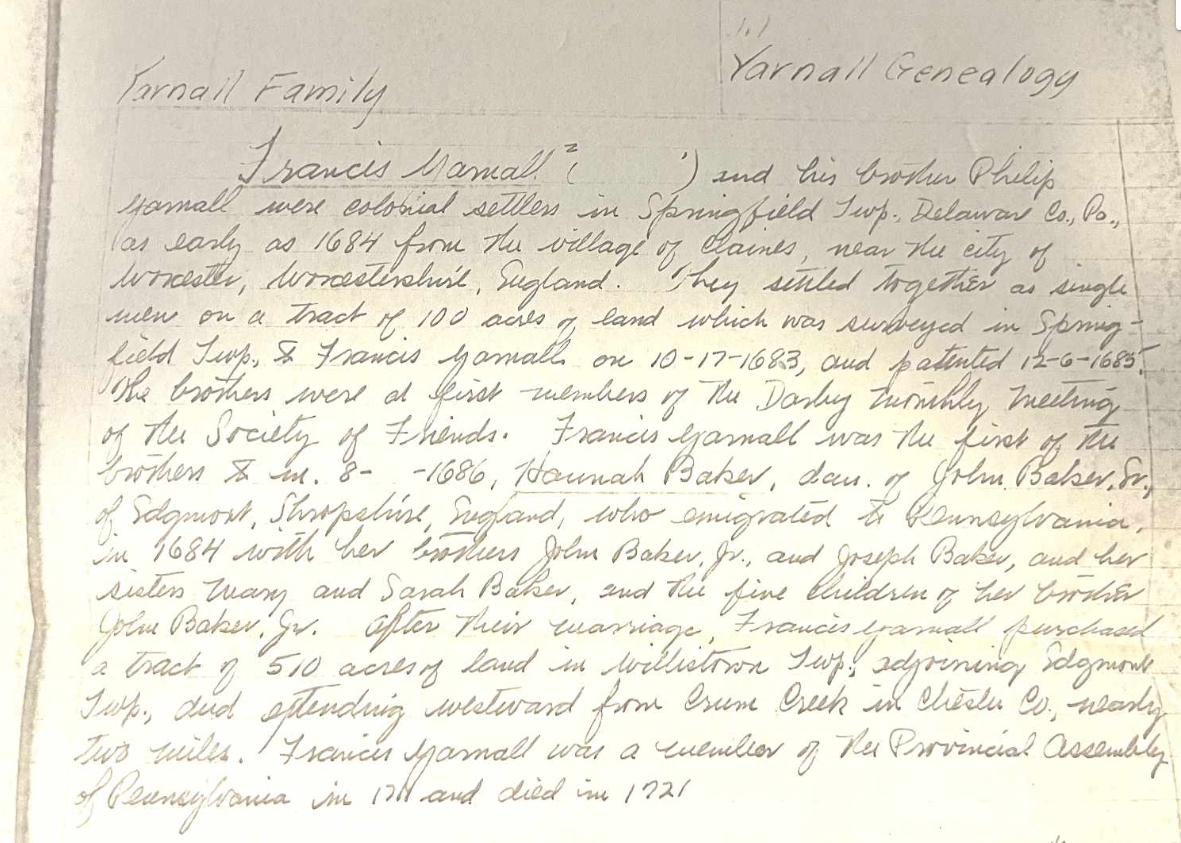 1.1
Yarnall Family
Yarnall Genealogy
Francis Yarnall ² ( ') and his brother Philip
Yarnall were colonial settlers in Springfield Twp., Delaware Co., Pa.,
as early as 1684 from the village of Claines, near the city of
Worcester, Worcestershire, England. They settled together as single
men on a tract of 100 acres of land which was surveyed in Spring-
field Twp., to Francis Yarnall on 10-17-1683, and patented 12-6-1685.
The brothers were at first members of the Darby Monthly Meeting
of the Society of Friends. Francis Yarnall was the first of the
brothers to m. 8- -1686, Hannah Baker, dau. of John Baker, Sr.,
of Edgmont, Shropshire, England, who emigrated to Pennsylvania,
in 1684 with her brothers John Baker, Jr., and Joseph Baker, and her
sisters Mary and Sarah Baker, and the five children of her brother
John Baker, Jr. After their marriage, Francis Yarnall purchased
a tract of 510 acres of land in Willistown Twp., adjoining Edgmont
Twp., and extending westward from Crum Creek in Chester Co., nearly
two miles. Francis Yarnall was a member of the Provincial Assembly
of Pennsylvania in 1711 and died in 1721